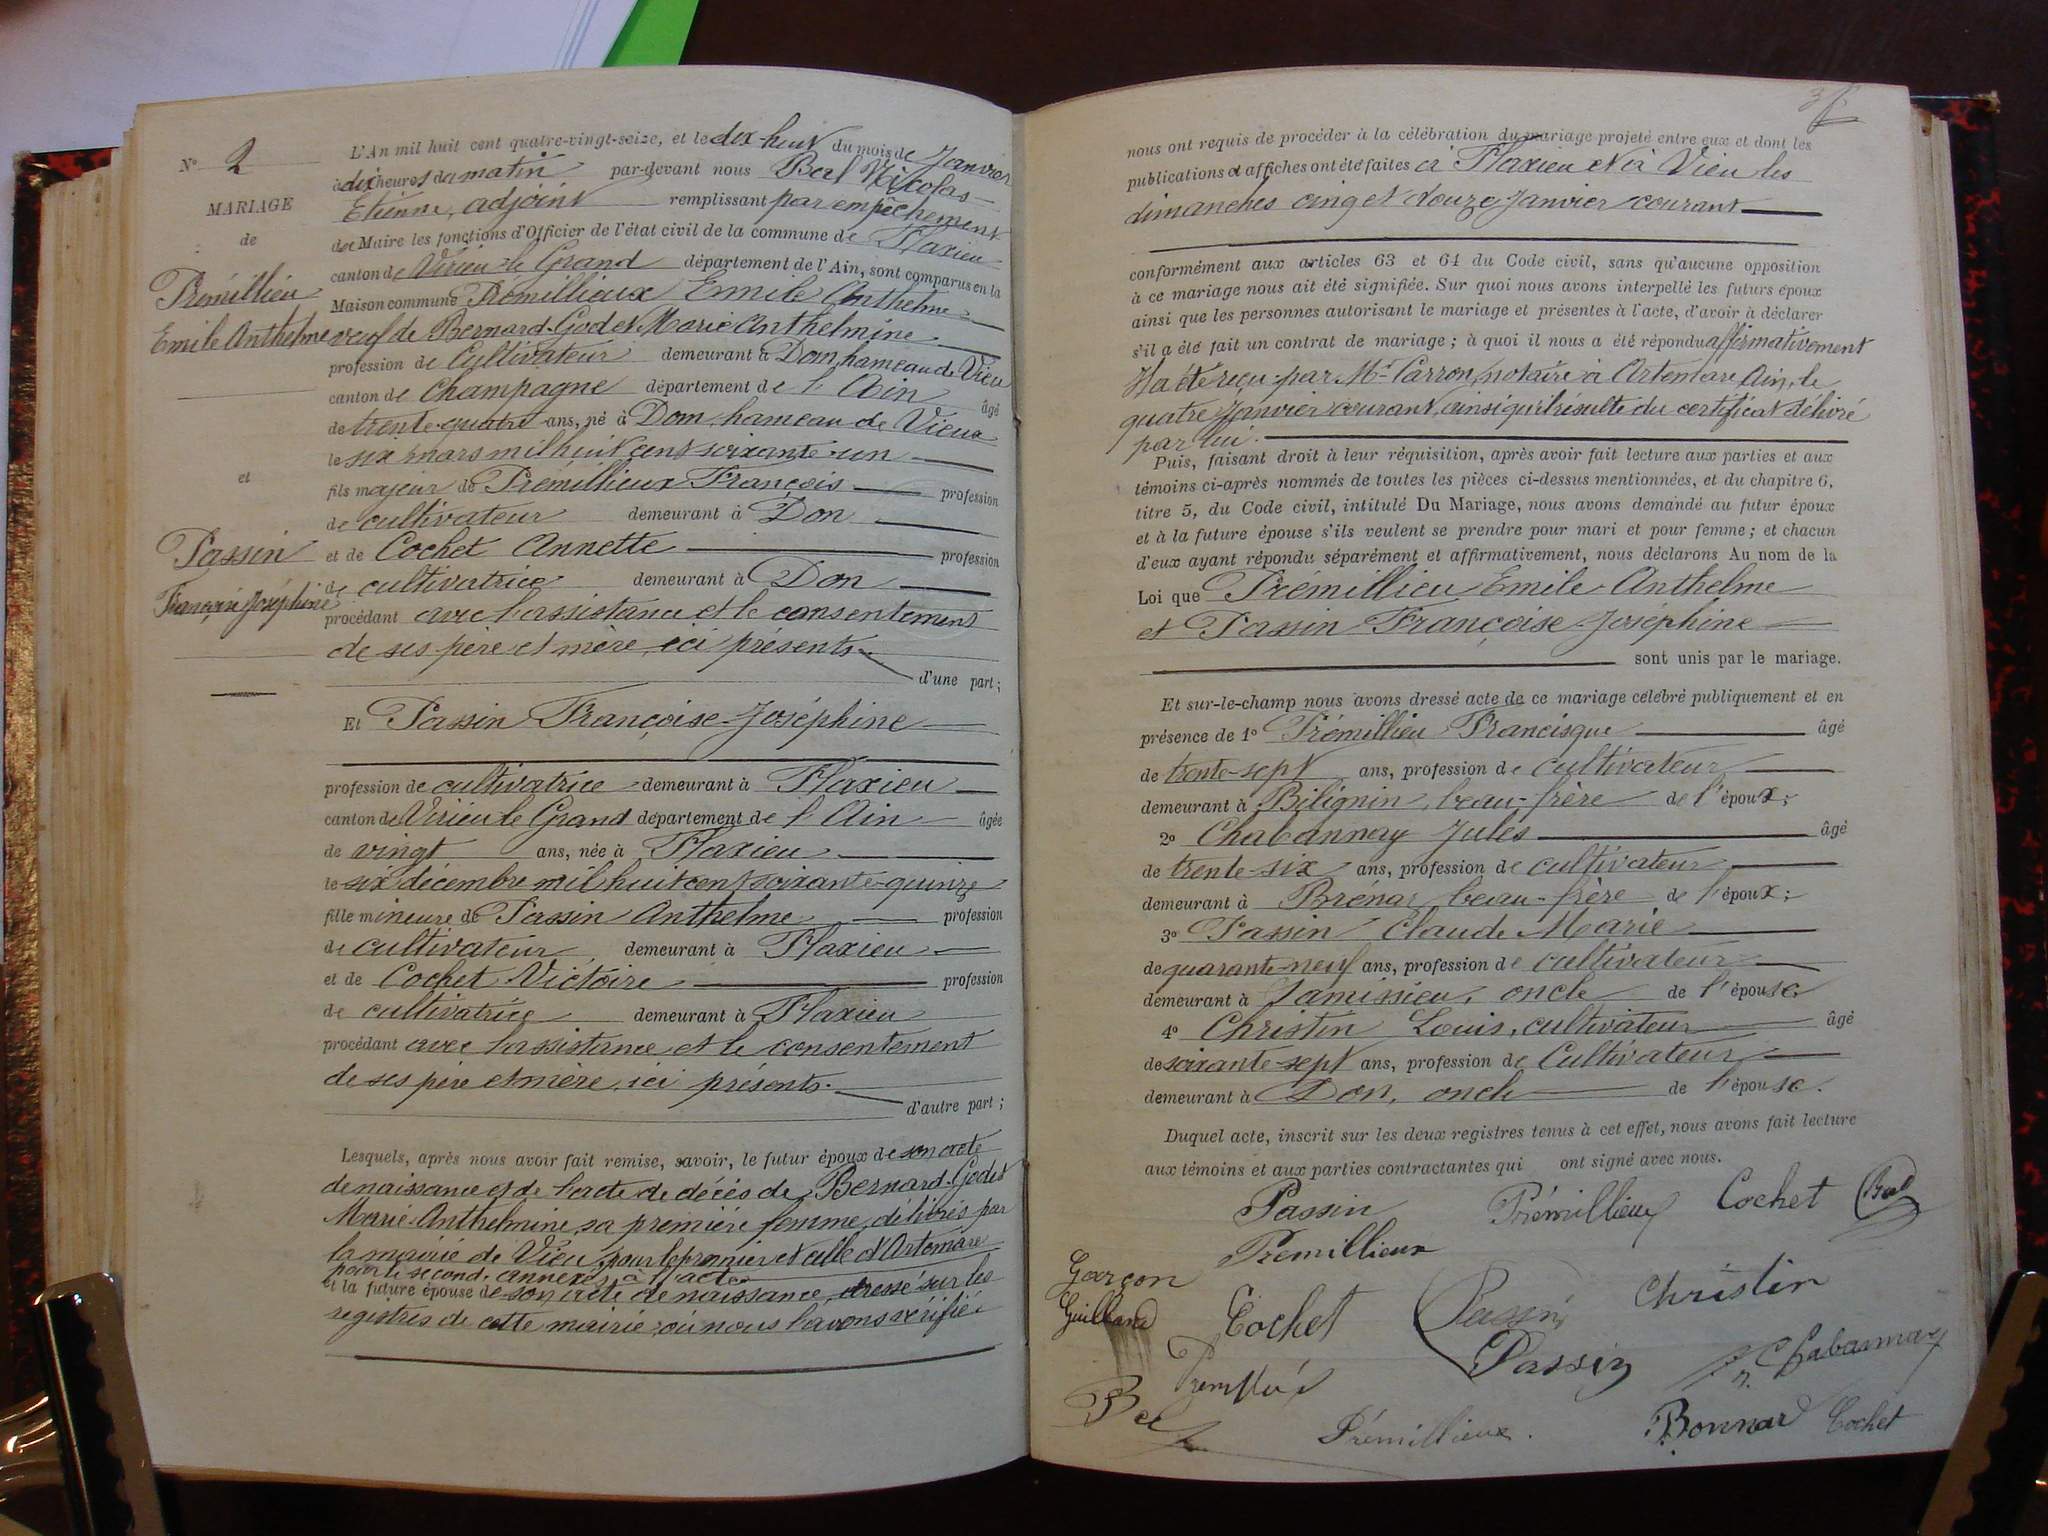 N° 2
MARIAGE
de
Prémillieu
Emile Anthelme
et
Passin
Françoise Joséphine
L'An mil huit cent quatre-vingt-seize, et le dix-huit du mois de Janvier
à dix heures du matin par-devant nous Bel Nicolas
Etienne, adjoint remplissant par empêchement
du Maire les fonctions d'Officier de l'état civil de la commune de Flaxieu
canton de Virieu-le Grand département de l'Ain, sont comparus en la
Maison commune Prémillieux Emile Anthelme
veuf de Bernard-Godet Marie Anthelmine
profession de Cultivateur demeurant à Dom, hameau de Vieu
canton de Champagne département de l'Ain âgé
de trente-quatre ans, né à Dom, hameau de Vieux
le six mars mil huit cent soixante-un
fils majeur de Prémillieux François profession
de cultivateur demeurant à Don
et de Cochet Annette profession
de cultivatrice demeurant à Don
procédant avec l'assistance et le consentement
de ses père et mère, ici présents
d'une part;
Et Passin Françoise-Joséphine
profession de cultivatrice demeurant à Flaxieu
canton de Virieu le Grand département de l'Ain âgée
de vingt ans, née à Flaxieu
le six décembre mil huit cent soixante-quinze
fille mineure de Passin Anthelme profession
de cultivateur demeurant à Flaxieu
et de Cochet Victoire profession
de cultivatrice demeurant à Flaxieu
procédant avec l'assistance et le consentement
de ses père et mère, ici présents.
d'autre part;
Lesquels, après nous avoir fait remise, savoir, le futur époux de son acte
de naissance et de l'acte de décès de Bernard-Godet
Marie-Anthelmine, sa première femme, délivrés par
la mairie de Vieu, pour le premier et celle d'Artemare
pour le second, annexés à l'acte
et la future épouse de son acte de naissance, dressé sur les
registres de cette mairie où nous l'avons vérifié
nous ont requis de procéder à la célébration du mariage projeté entre eux et dont les
publications et affiches ont été faites à Flaxieu et à Vieu les
dimanches cinq et douze Janvier courant
conformément aux articles 63 et 64 du Code civil, sans qu'aucune opposition
à ce mariage nous ait été signifiée. Sur quoi nous avons interpellé les futurs époux
ainsi que les personnes autorisant le mariage et présentes à l'acte, d'avoir à déclarer
s'il a été fait un contrat de mariage; à quoi il nous a été répondu affirmativement
Il a été reçu par Me Carron, notaire à Artemare, Ain, le
quatre Janvier courant, ainsi qu'il résulte du certificat délivré
par lui.
Puis, faisant droit à leur réquisition, après avoir fait lecture aux parties et aux
témoins ci-après nommés de toutes les pièces ci-dessus mentionnées, et du chapitre 6,
titre 5, du Code civil, intitulé Du Mariage, nous avons demandé au futur époux
et à la future épouse s'ils veulent se prendre pour mari et pour femme; et chacun
d'eux ayant répondu séparément et affirmativement, nous déclarons Au nom de la
Loi que Prémillieu Emile-Anthelme
et Passin Françoise-Joséphine
sont unis par le mariage.
Et sur-le-champ nous avons dressé acte de ce mariage célébré publiquement et en
présence de 1° Prémillieu Francisque âgé
de trente-sept ans, profession de cultivateur
demeurant à Bilignin, beau-frère de l'époux;
2° Chabannay Jules âgé
de trente-six ans, profession de cultivateur
demeurant à Brénaz, beau-frère de l'époux;
3° Passin Claude Marie
de quarante-neuf ans, profession de cultivateur
demeurant à Jamissieu, oncle de l'épouse
4° Christin Louis, cultivateur âgé
de soixante-sept ans, profession de Cultivateur
demeurant à Don, oncle de l'épouse.
Duquel acte, inscrit sur les deux registres tenus à cet effet, nous avons fait lecture
aux témoins et aux parties contractantes qui ont signé avec nous.
Passin Prémillieux Cochet Bel
Premillieux
Garçon
Guilland Cochet Passin Christin
Passin Chabannay
Bel
Prémillieux. Bonnard Cochet